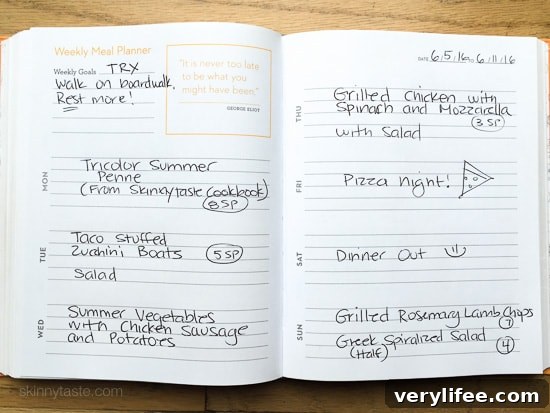 Weekly Meal Planner
Weekly Goals TRX
Walk on boardwalk,
Rest more!
"It is never too late
to be what you
might have been."
GEORGE ELIOT
MON
Tricolor Summer
Penne
(From Skinnytaste Cookbook)
8 SP
TUE
Taco Stuffed
Zucchini Boats 5 SP
Salad
WED
Summer Vegetables
with Chicken Sausage
and Potatoes
DATE 6/5/16 TO 6/11/16
THU
Grilled Chicken with
Spinach and Mozzarella
3 SP
with Salad
FRI
Pizza night!
SAT
Dinner Out
SUN
Grilled Rosemary Lamb Chops
7
Greek Spiralized Salad 4
(Half)
skinnytaste.com
verylifee.com